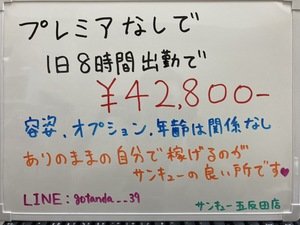 プレミアなしで
1日8時間出勤で
¥42,800-
容姿、オプション、年齢は関係なし
ありのままの自分で稼げるのが
サンキューの良い所です♥
LINE:gotanda__39
サンキュー五反田店